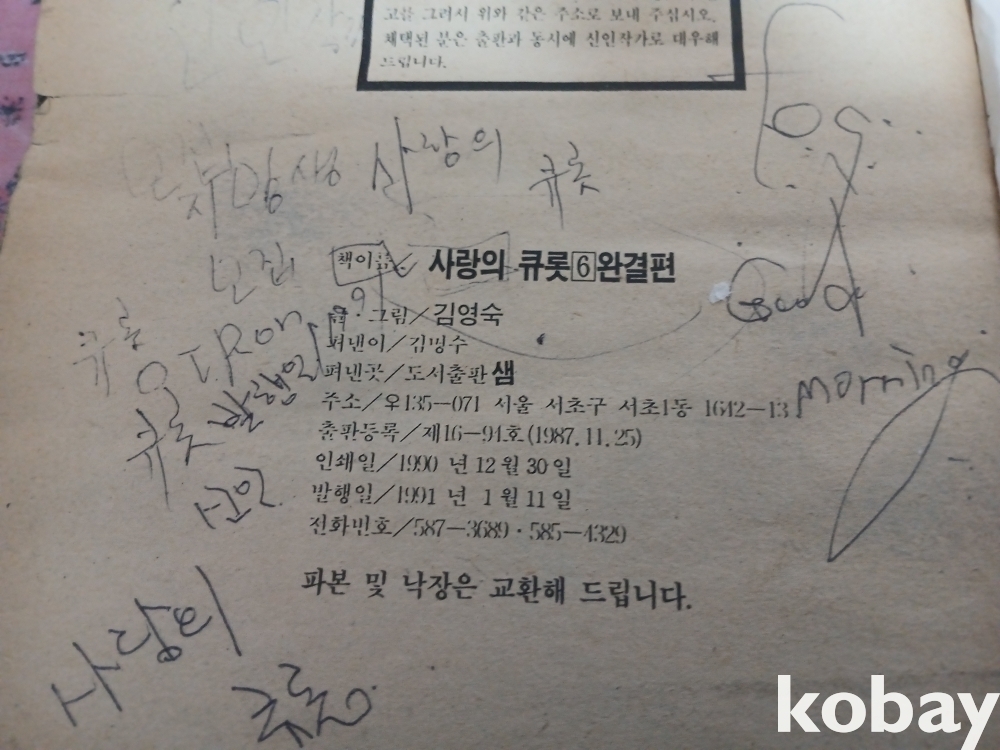 고를 그려서 위와 같은 주소로 보내 주십시오.
채택된 분은 출판과 동시에 신인작가로 대우해
드립니다.
사랑의 큐롯
모집
책이름/사랑의 큐롯6완결편
글·그림/김영숙
펴낸이/김명수
펴낸곳/도서출판 샘
주소/우135-071 서울 서초구 서초1동 1642-13
출판등록/제16-94호(1987.11.25)
인쇄일/1990 년 12월 30일
발행일/1991 년 1 월 11 일
전화번호/587-3689·585-4329
파본 및 낙장은 교환해 드립니다.
Good
Morning
큐롯 발행일
사랑의
큐롯
kobay